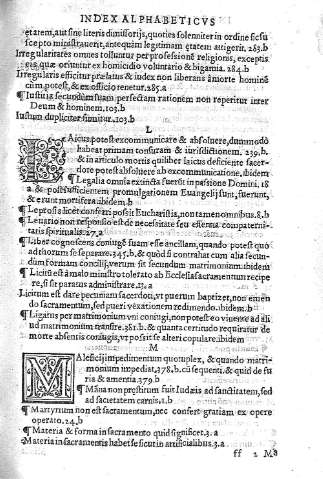 INDEX ALPHABETICVS
ętatem, aut sine literis dimissorijs, quoties solenniter in ordine sic su
scepto ministrauerit, antequàm legitimam ętatem attigerit. 283.b
Irregularitates omnes tolluntur per professionē religionis, exceptis
eis quæ oriuntur ex homicidio voluntario & bigamia. 284.b
Irregularis efficitur prælatus & iudex non liberans à morte hominē
cùm potest, & ex officio tenetur. 285.a
¶ Iustitia secundùm suam perfectam rationem non reperitur inter
Deum & hominem. 103.b
Iustum dupliciter sumitur. 103.b
L
Aicus potest excommunicare & absoluere, dummodò
habeat primam tonsuram & iurisdictionem. 239.b.
& in articulo mortis quilibet laicus deficiente sacer-
dote potest absoluere ab excommunicatione, ibidem
¶ Legalia omnia extincta fuerūt in passione Domini. 18
a & post sufficientem promulgationem Euangelij sunt, fuerunt,
& erunt mortifera ibidem. b
¶ Leprosis licet conferri possit Eucharistia, non tamen omnibus. 8.b
¶ Leuatio non responsio est de necessitate seu essentia compaternita-
tis spiritualis. 27.a
¶ Liber cognoscens coniugē suam esse ancillam, quando potest quo
ad thorum se separare. 345.b. & quòd si contrahat cum alia secun-
dùm formam concilij, verum sit secundum matrimonium. ibidem
¶ Licitū est à malo ministro tolerato ab Ecclesia sacramentum recipe
re, si sit paratus administrare. 13.a
Licitum est dare pecuniam sacerdoti, vt puerum baptizet, non emen
do sacramentum, sed pueri vexationem redimendo. ibidem. b
¶ Ligatus per matrimonium vni coniugi, non potest eo viuente ad ali
ud matrimonium transire. 381.b. & quanta certitudo requiratur de
morte absentis coniugis, vt possit se alteri copulare. ibidem
M
Aleficij impedimentum quotuplex, & quando matri-
monium impediat. 378.b. cū sequenti. & quid de fu
rijs & amentia. 379.b
¶ Māna non præstitum fuit Iudæis ad sanctitatem, sed
ad sacietatem carnis. 1.b
¶ Martyrium non est sacramentum, nec confert gratiam ex opere
operato. 24.b
¶ Materia & forma in sacramento quid significet. 3.a
Materia in sacramentis habet se sicut in artificialibus. 3.a
ff 2 Ma